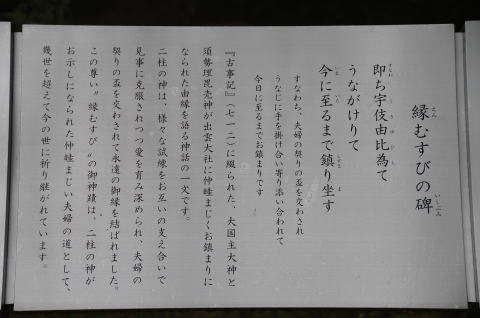 縁むすびの碑
えん
いしぶみ
即ち宇伎由比為て
すなわ
うきゆひし
うながけりて
今に至るまで鎮り坐す
いま
いた
しずま
ま
すなわち、夫婦の契りの盃を交わされ
うなじに手を掛け合い寄り添い合われて
今日に至るまでお鎮まりです
『古事記』(七一二)に綴られた、大国主大神と
須勢理毘売神が出雲大社に仲睦まじくお鎮まりに
なられた由縁を語る神話の一文です。
二柱の神は、様々な試練をお互いの支え合いで
見事に克服されつつ愛を育み深められ、夫婦の
契りの盃を交わされて永遠の御縁を結ばれました。
この尊い〝縁むすび〟の御神蹟は、二柱の神が
お示しになられた仲睦まじい夫婦の道として、
幾世を超えて今の世に祈り継がれています。